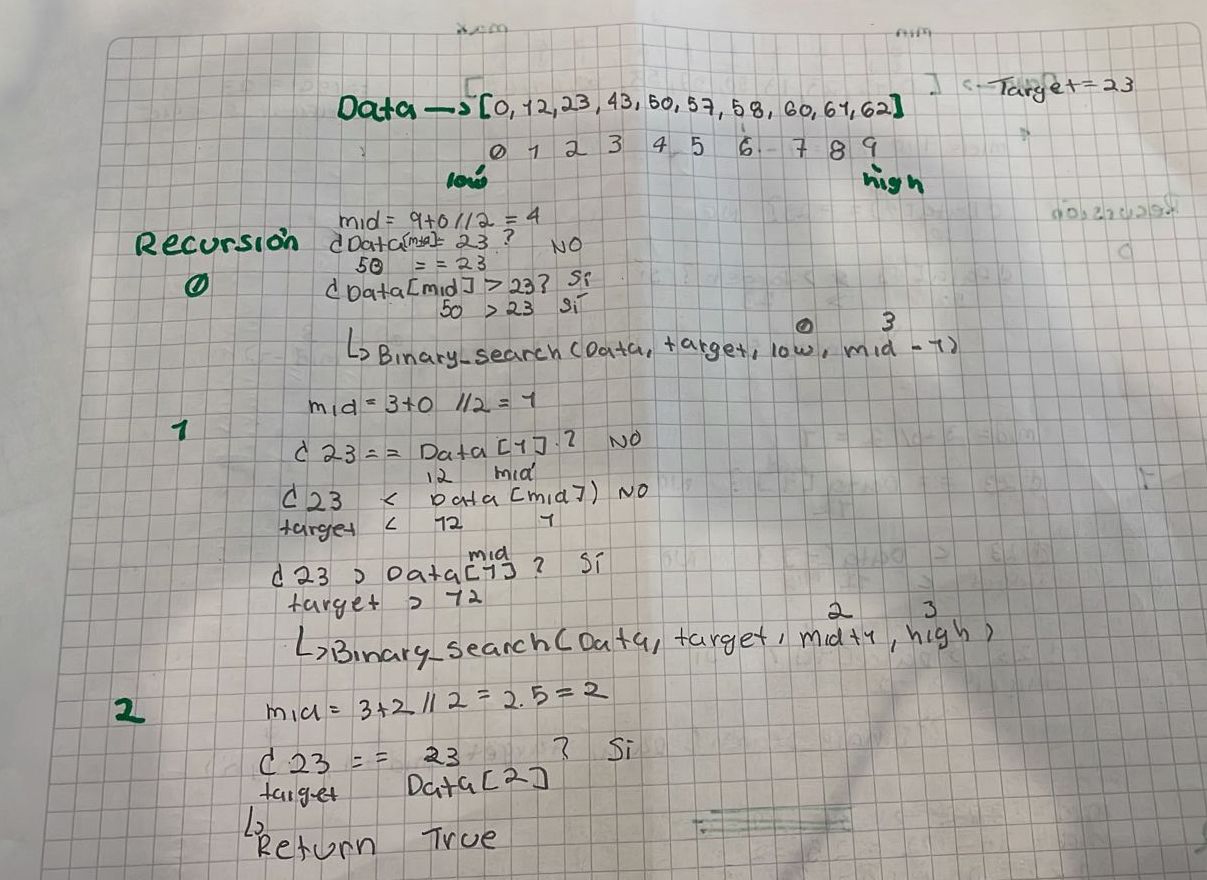 Data → [0, 12, 23, 43, 50, 57, 58, 60, 61, 62] ← Target = 23
0 1 2 3 4 5 6 7 8 9
low high
mid = 9+0 // 2 = 4
Recursión ¿Data[mid]= 23 ? NO
50 == 23
0 ¿Data[mid] > 23? Si
50 > 23 Si
0 3
↳ Binary_search (Data, target, low, mid - 1)
mid = 3+0 // 2 = 1
1
¿ 23 == Data [1] ? NO
12 mid
¿ 23 < Data [mid]) NO
target < 12 1
mid
¿ 23 > Data [1] ? Si
target > 12
2 3
↳ Binary_search (Data, target, mid+1, high)
2 mid = 3+2 // 2 = 2.5 = 2
¿ 23 == 23 ? Si
target Data [2]
↳ Return True